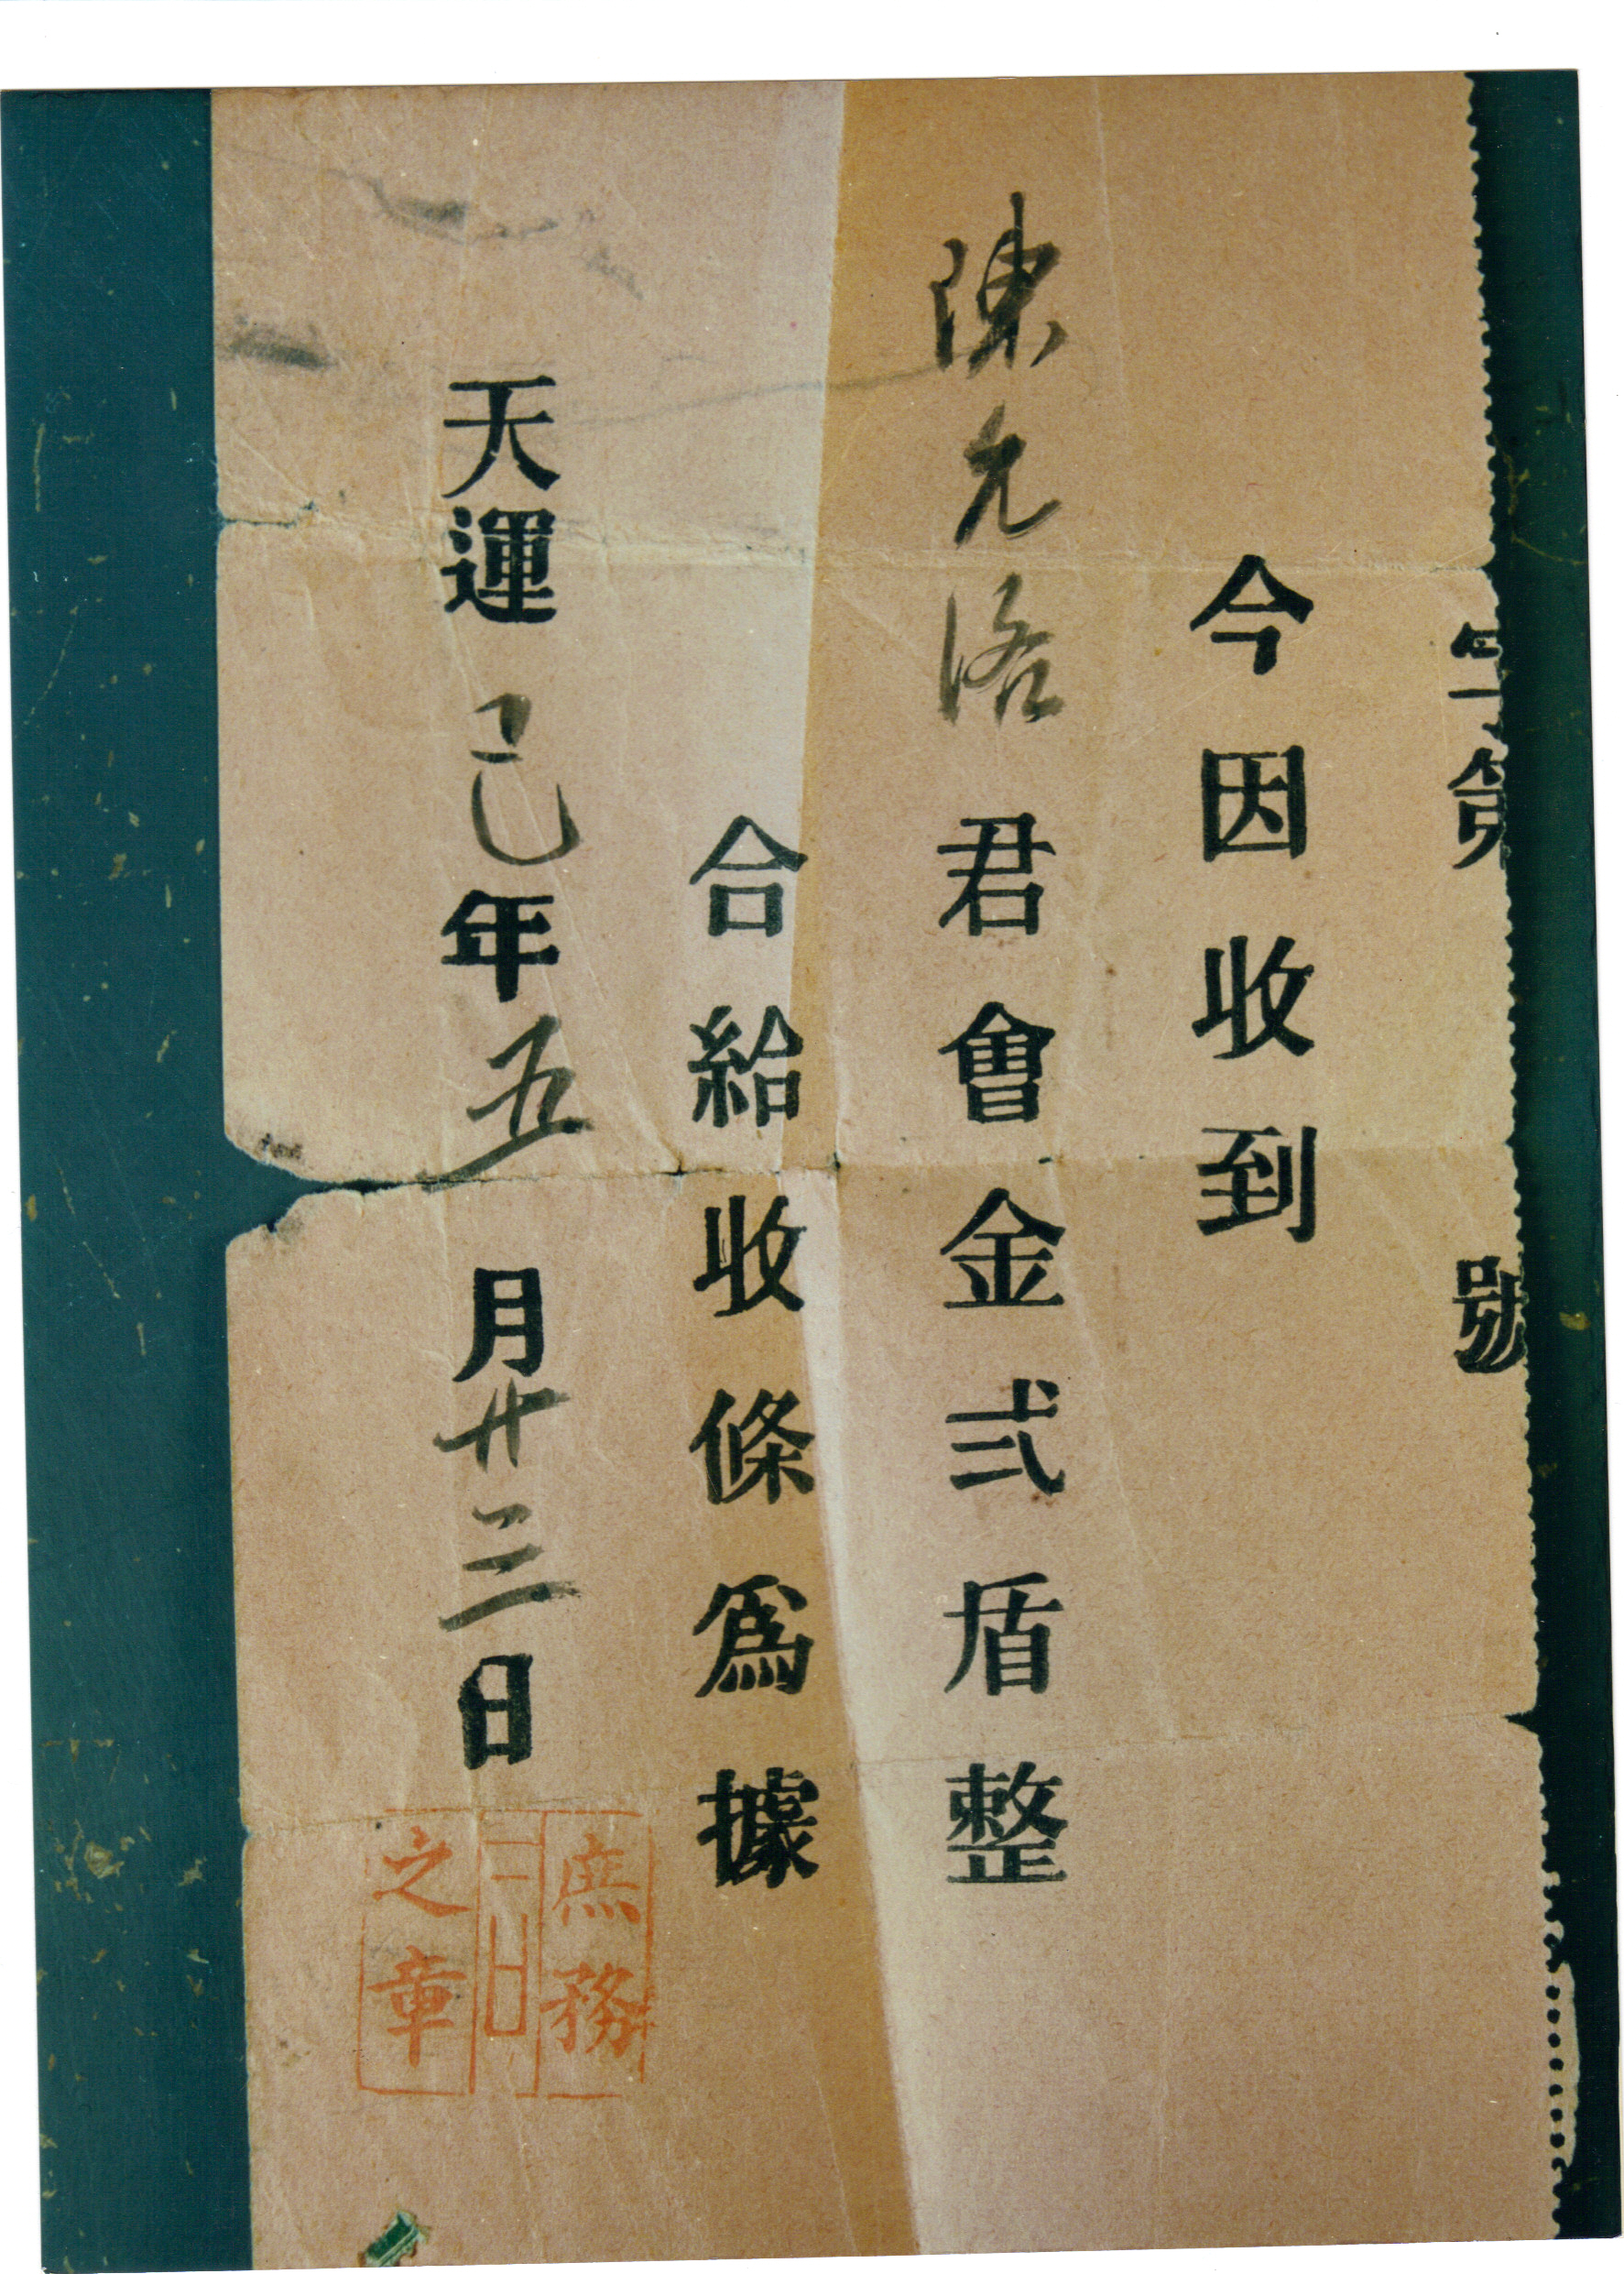 字第 號
今因收到
陳允洛君會金弍盾整
合給收條為據
天運己年五月廿三日
庶務
之章